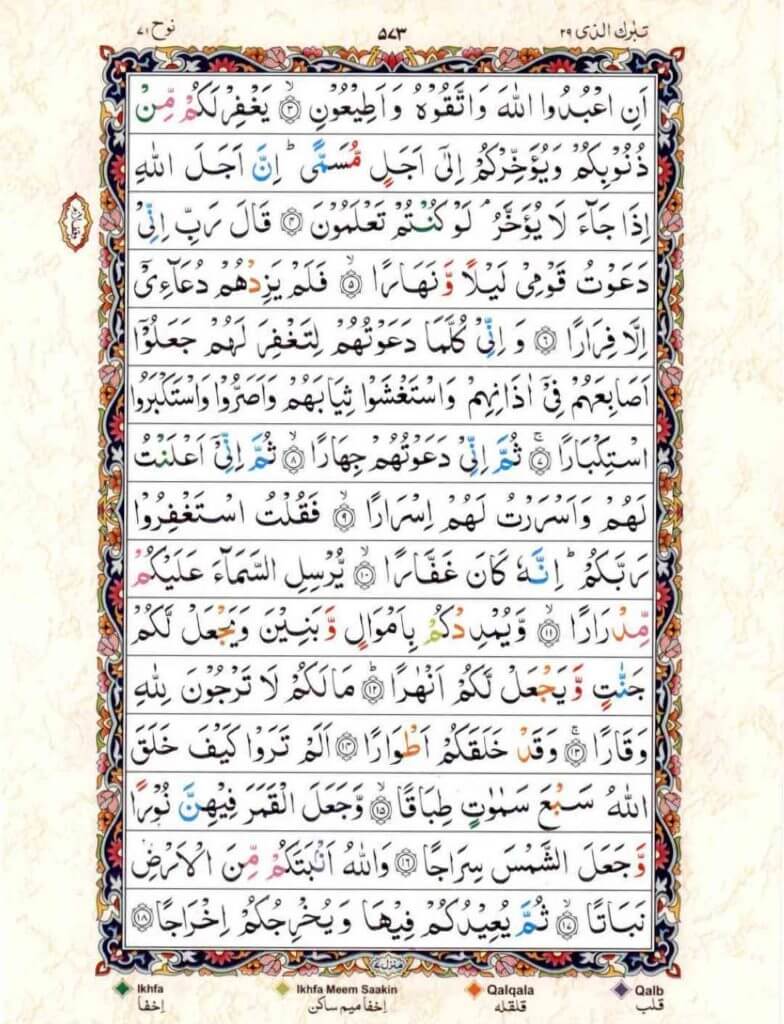 تبٰرك الذى ٢٩
٥٤٣
نوح ٧١
اَنِ اعْبُدُوا اللّٰهَ وَاتَّقُوْهُ وَاَطِيْعُوْنِ ۙ﴿۳﴾ يَغْفِرْ لَكُمْ مِّنْ
ذُنُوْبِكُمْ وَيُؤَخِّرْكُمْ اِلٰٓى اَجَلٍ مُّسَمًّى ؕ اِنَّ اَجَلَ اللّٰهِ
اِذَا جَآءَ لَا يُؤَخَّرُ ۘ لَوْ كُنْتُمْ تَعْلَمُوْنَ ﴿۴﴾ قَالَ رَبِّ اِنِّىْ
دَعَوْتُ قَوْمِىْ لَيْلًا وَّنَهَارًا ۙ﴿۵﴾ فَلَمْ يَزِدْهُمْ دُعَآءِىْٓ
اِلَّا فِرَارًا ﴿۶﴾ وَاِنِّىْ كُلَّمَا دَعَوْتُهُمْ لِتَغْفِرَ لَهُمْ جَعَلُوْٓا
اَصَابِعَهُمْ فِىْٓ اٰذَانِهِمْ وَاسْتَغْشَوْا ثِيَابَهُمْ وَاَصَرُّوْا وَاسْتَكْبَرُوا
اسْتِكْبَارًا ۚ﴿۷﴾ ثُمَّ اِنِّىْ دَعَوْتُهُمْ جِهَارًا ۙ﴿۸﴾ ثُمَّ اِنِّىْٓ اَعْلَنْتُ
لَهُمْ وَاَسْرَرْتُ لَهُمْ اِسْرَارًا ۙ﴿۹﴾ فَقُلْتُ اسْتَغْفِرُوْا
رَبَّكُمْ ؕ اِنَّهٗ كَانَ غَفَّارًا ۙ﴿۱۰﴾ يُّرْسِلِ السَّمَآءَ عَلَيْكُمْ
مِّدْرَارًا ۙ﴿۱۱﴾ وَّيُمْدِدْكُمْ بِاَمْوَالٍ وَّبَنِيْنَ وَيَجْعَلْ لَّكُمْ
جَنّٰتٍ وَّيَجْعَلْ لَّكُمْ اَنْهٰرًا ؕ﴿۱۲﴾ مَا لَكُمْ لَا تَرْجُوْنَ لِلّٰهِ
وَقَارًا ۚ﴿۱۳﴾ وَقَدْ خَلَقَكُمْ اَطْوَارًا ﴿۱۴﴾ اَلَمْ تَرَوْا كَيْفَ خَلَقَ
اللّٰهُ سَبْعَ سَمٰوٰتٍ طِبَاقًا ۙ﴿۱۵﴾ وَّجَعَلَ الْقَمَرَ فِيْهِنَّ نُوْرًا
وَّجَعَلَ الشَّمْسَ سِرَاجًا ﴿۱۶﴾ وَاللّٰهُ اَنْۢبَتَكُمْ مِّنَ الْاَرْضِ
نَبَاتًا ۙ﴿۱۷﴾ ثُمَّ يُعِيْدُكُمْ فِيْهَا وَيُخْرِجُكُمْ اِخْرَاجًا ﴿۱۸﴾
Ikhfa
Ikhfa Meem Saakin
Qalqala
Qalb
اخفا
اخفا میم ساکن
قلقله
قلب